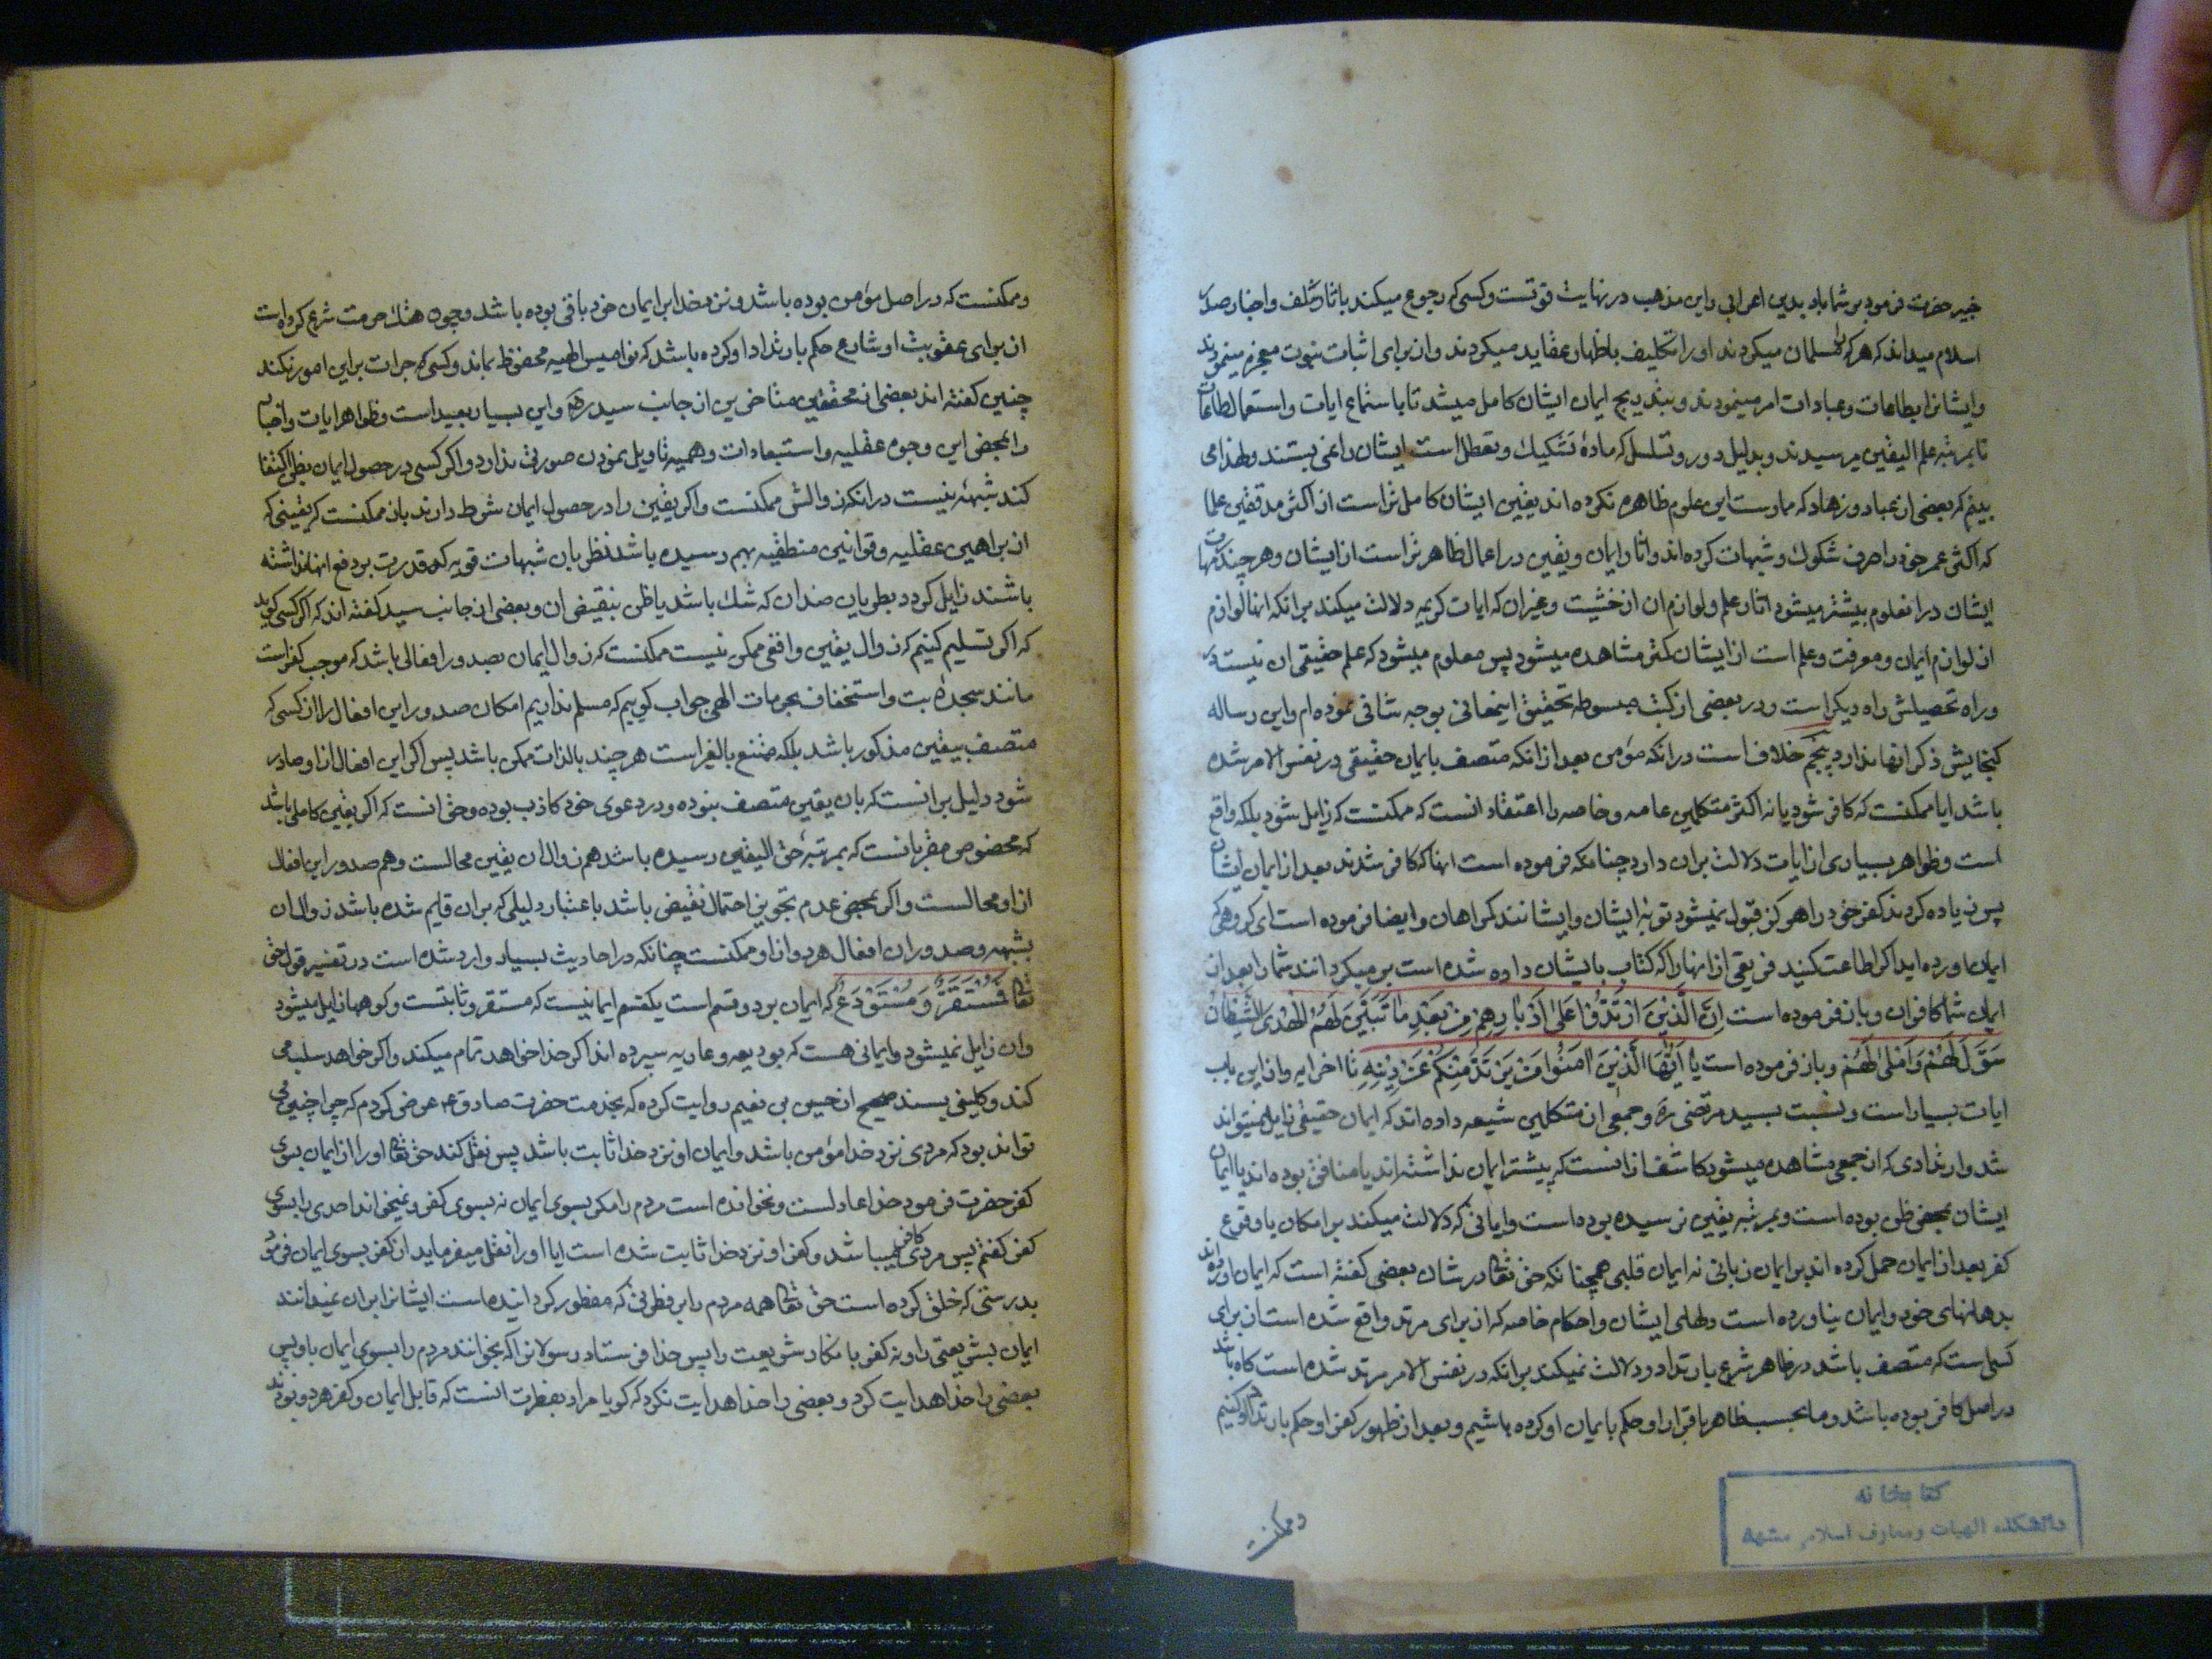 خیر حضرت فرمود بر شما باد بدین اعرابی و این مذهب در نهایت قوتست و کسی که رجوع میکند باثار سلف و اخبار صدر
اسلام میداند که هر که را مسلمان میکردند او را تکلیف باظهار عقاید میکردند و از برای اثبات نبوت معجزه مینمودند
و ایشانرا بطاعات و عبادات امر مینمودند و بتدریج ایمان ایشان کامل میشد تا باستماع ایات و استعمال طاعات
تا بمرتبه علم الیقین میرسیدند و بدلیل دور و تسلسل که ماده تشکیک و تعطل است ایشان را نمی بستند و لهذا می
بینم که بعضی از عباد و زهاد که ممارست این علوم ظاهره نکرده اند یقین ایشان کامل تر است از اکثر مدققین علما
که اکثر عمر خود را صرف شکوک و شبهات کرده اند و اثار ایمان و یقین در اعمال ظاهر تر است از ایشان و هر چند مهارت
ایشان در این علوم بیشتر میشود اثار علم و لوازم ان از خشیت و غیر ان که ایات کریمه دلالت میکند بر انکه انها لوازم
از لوازم ایمان و معرفت و علم است از ایشان کمتر مشاهده میشود پس معلوم میشود که علم حقیقی ان نیست
و راه تحصیلش راه دیگر است و در بعضی از کتب مبسوطه تحقیق اینمعانی بوجه شافی نموده ام و این رساله
گنجایش ذکر انها ندارد پنجم خلاف است در انکه مؤمن بعد از انکه متصف بایمان حقیقی در نفس الامر شده
باشد ایا ممکنست که کافر شود یا نه اکثر متکلمین عامه و خاصه را اعتقاد انست که ممکنست که زایل شود بلکه واقع
است و ظواهر بسیاری از ایات دلالت بر ان دارد چنانکه فرموده است انها که کافر شدند بعد از ایمان ایشان
پس زیاده کردند کفر خود را هرگز قبول نمیشود توبه ایشان و ایشانند گمراهان و ایضا فرموده است ای گروهی که
ایمان اورده اید اگر اطاعت کنید فریقی از انها را که کتاب بایشان داده شده است بر میگردانند شما را بعد از
ایمان شما کافران و باز فرموده است اِنَّ الَّذِیْنَ ارْتَدُّوا عَلیٰ اَدْبارِهِمْ مِنْ بَعْدِ ما تَبَیَّنَ لَهُمُ الْهُدَی الشَّیْطانُ
سَوَّلَ لَهُمْ وَ اَمْلیٰ لَهُمْ و باز فرموده است یا اَیُّهَا الَّذِیْنَ امَنُوا مَنْ یَرْتَدَّ مِنْکُمْ عَنْ دِیْنِهِ تا اخر ایه و از این باب
ایات بسیار است و نسبت بسید مرتضی ره و جمعی از متکلمین شیعه داده اند که ایمان حقیقی زایل نمیتواند
شد و ارتدادی که از جمعی مشاهده میشود کاشف از انست که پیشتر ایمان نداشته اند یا منافق بوده اند یا ایمان
ایشان بمحض ظن بوده است و بمرتبه یقین نرسیده بوده است و ایاتی که دلالت میکند بر امکان یا وقوع
کفر بعد از ایمان حمل کرده اند بر ایمان زبانی نه ایمان قلبی همچنانکه حق تعالی در شان بعضی گفته است که ایمان اورده اند
بدهانهای خود و ایمان نیاورده است دلهای ایشان و احکام خاصه که از برای مرتد واقع شده است از برای
کسی است که متصف باشد در ظاهر شرع بارتداد و دلالت نمیکند بر انکه در نفس الامر مرتد شده است گاه باشد
در اصل کافر بوده باشد و ما بحسب ظاهر باقرار او حکم بایمان او کرده باشیم و بعد از ظهور کفر او حکم بارتداد او کنیم
و ممکنست
کتابخانه
دانشکده الهیات و معارف اسلامی مشهد
و ممکنست که در اصل مؤمن بوده باشد و نزد خدا بر ایمان خود باقی بوده باشد و چون هتک حرمت شرع کرده است
از برای عقوبت او شارع حکم بارتداد او کرده باشد که نوامیس الهیه محفوظ بماند و کسی که جرات بر این امور نکند
چنین گفته اند بعضی از محققین متاخرین از جانب سید ره و این بسیار بعید است و ظواهر ایات و اخبار
را بمحض این وجوه عقلیه و استبعادات وهمیه تاویل نمودن صورتی ندارد و اگر کسی در حصول ایمان بظن اکتفا
کند شبهه نیست در انکه زوالش ممکنست و اگر یقین را در حصول ایمان شرط دارند باز ممکنست که یقینی که
از براهین عقلیه و قوانین منطقیه بهم رسیده باشد نظر بان شبهات قویه که قدرت بر دفع انها نداشته
باشند زایل گردد بطریان ضد ان که شک باشد یا ظن بنقیض ان و بعضی از جانب سید گفته اند که اگر کسی گوید
که اگر تسلیم کنیم که زوال یقین واقعی ممکن نیست ممکنست که زوال ایمان بصدور افعالی باشد که موجب کفر است
مانند سجده بت و استخفاف بحرمات الهی جواب گوییم که مسلم نداریم امکان صدور این افعال را از کسی که
متصف بیقین مذکور باشد بلکه ممتنع بالغیر است هر چند بالذات ممکن باشد پس اگر این افعال از او صادر
شود دلیل بر انست که بان یقین متصف نبوده و در دعوی خود کاذب بوده و حق انست که اگر یقین کامل باشد
که مخصوص مقربانست که بمرتبه حق الیقین رسیده باشد هم زوال ان یقین محالست و هم صدور این افعال
از او محالست و اگر بمحض عدم تجویز احتمال نقیض باشد باعتبار دلیلی که بر ان قایم شده باشد زوال ان
بشبهه و صدور ان افعال هر دو از او ممکنست چنانکه در احادیث بسیار وارد شده است در تفسیر قول حق
تعالی فَمُسْتَقَرٌّ وَ مُسْتَوْدَعٌ که ایمان بر دو قسم است یکقسم ایمانیست که مستقر و ثابتست و کوهها زایل میشود
و ان زایل نمیشود و ایمانی هست که بودیعه و عاریه سپرده اند اگر خدا خواهد تمام میکند و اگر خواهد سلب می
کند و کلینی بسند صحیح از حسین بن نعیم روایت کرده که بخدمت حضرت صادق ع عرض کردم که چرا چنین می
تواند بود که مردی نزد خدا مؤمن باشد و ایمان او نزد خدا ثابت باشد پس نقل کند حق تعالی او را از ایمان بسوی
کفر حضرت فرمود خدا عادلست و نخوانده است مردم را مگر بسوی ایمان نه بسوی کفر و نمیخواند احدی را بسوی
کفر گفتم پس مردی کافر میباشد و کفر او نزد خدا ثابت شده است ایا او را نقل میفرماید از کفر بسوی ایمان فرمود
بدرستی که خلق کرده است حق تعالی همه مردم را بر فطرتی که مفطور گردانیده است ایشانرا بر ان نمیدانند
ایمان بشریعتی را و نه کفر بانکار شریعت را پس خدا فرستاد رسولانرا که بخوانند مردم را بسوی ایمان باو پس
بعضی را خدا هدایت کرد و بعضی را خدا هدایت نکرد که گویا مراد بفطرت انست که قابل ایمان و کفر هر دو بودند